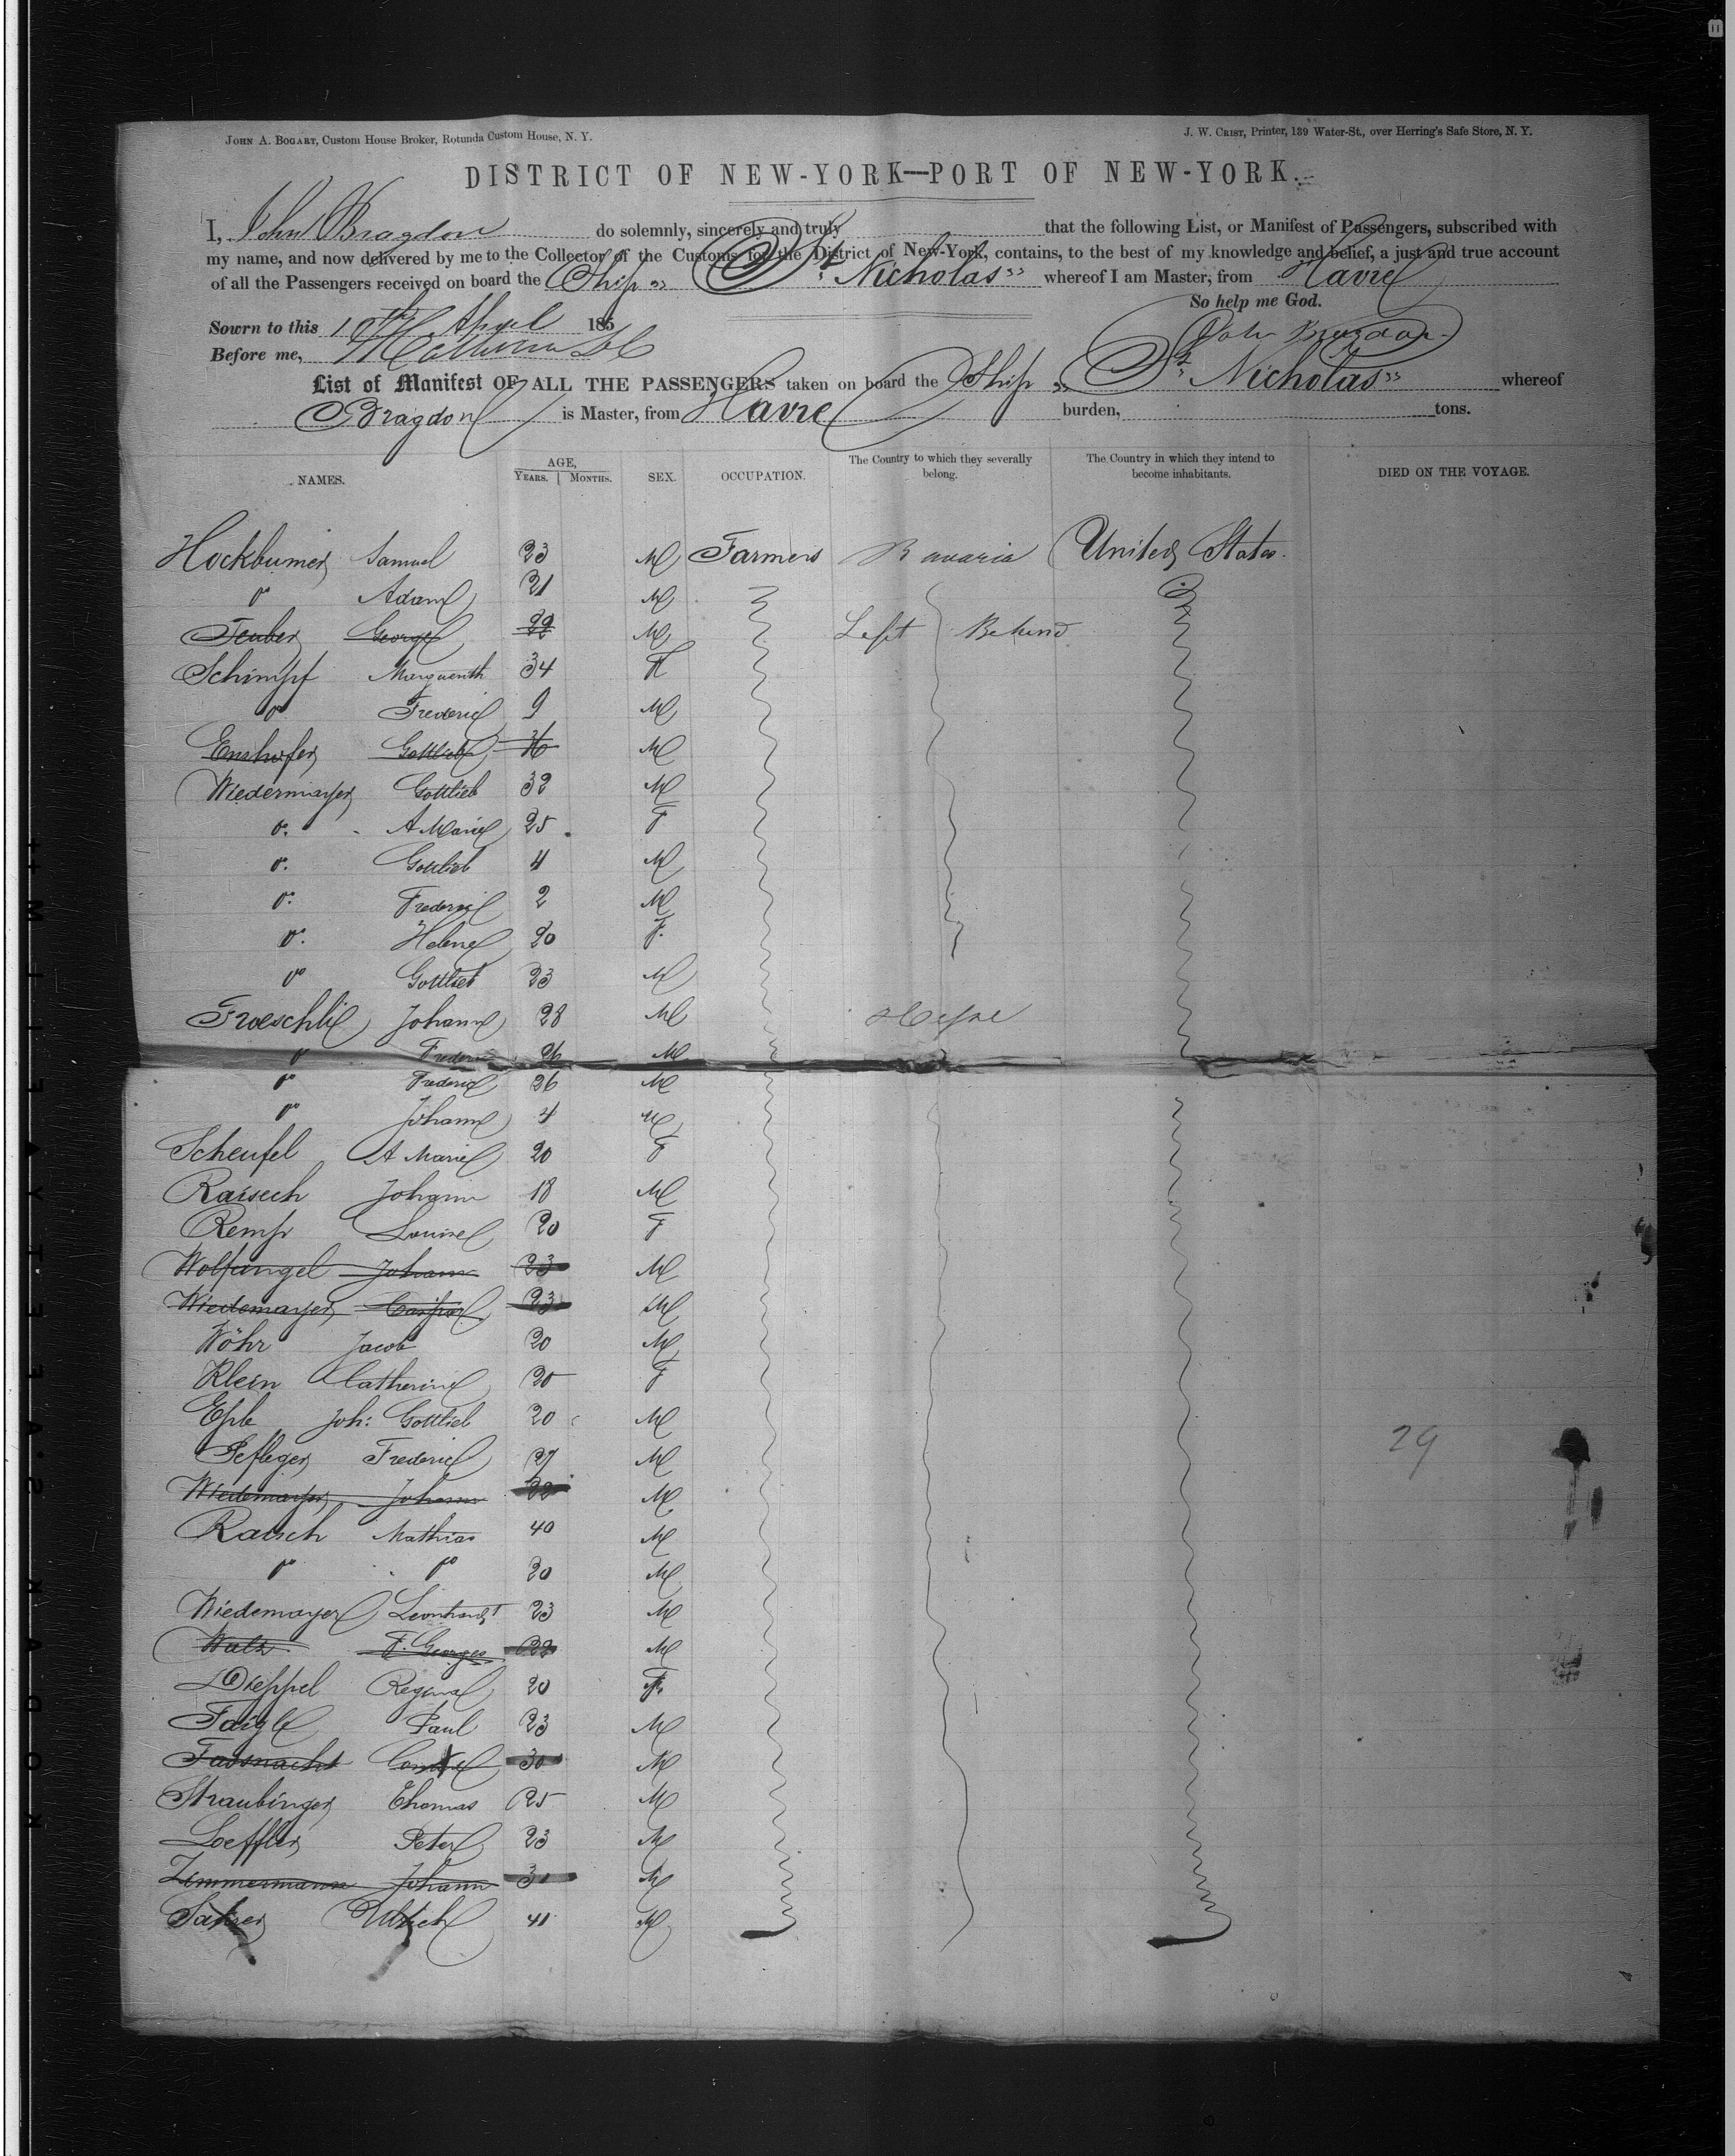 JOHN A. BOGART, Custom House Broker, Rotunda Custom House, N. Y.
J. W. CRIST, Printer, 139 Water-St., over Herring's Safe Store, N. Y.
DISTRICT OF NEW-YORK—PORT OF NEW-YORK.
I, John Bragdon do solemnly, sincerely and truly that the following List, or Manifest of Passengers, subscribed with
my name, and now delivered by me to the Collector of the Customs for the District of New-York, contains, to the best of my knowledge and belief, a just and true account
of all the Passengers received on board the Ship "St Nicholas" whereof I am Master, from Havre
So help me God.
Sworn to this 10th April 185
John Bragdon
Before me,
List of Manifest OF ALL THE PASSENGERS taken on board the Ship "St Nicholas" whereof
Bragdon is Master, from Havre burden, tons.
NAMES. AGE, YEARS. MONTHS. SEX. OCCUPATION. The Country to which they severally belong. The Country in which they intend to become inhabitants. DIED ON THE VOYAGE.
Samuel 23 M Farmers Bavaria United States.
do Adam 21 M
Teuber George 22 M Left Behind
Schimpf 34 F
do Frederic 9 M
Enshofer Gottlieb 36 M
Wiedermayer Gottlieb 32 M
do. A Marie 25 F
do. Gottlieb 4 M
do. Frederic 2 M
do. Helene 20 F.
do Gottlieb 23 M
Froeschle Johann 28 M Hesse
do Frederic 26 M
do Frederic 26 M
do Johann 4 M
Scheufel A Marie 20 F
Raisech Johann 18 M
Remp Louise 20 F
Wolfangel Johann 23 M
Wiedemayer Caspar 23 M
Wöhr Jacob 20 M
Klein Catherine 20 F
Eple Joh: Gottlieb 20 M
Pefleger Frederic 27 M
29
Wiedemayer Johann 22 M
Raisch Mathias 40 M
do do 20 M
Wiedemayer Leonhardt 23 M
F. Georges 22 M
Dieppel Regina 20 F.
Faigle Paul 23 M
Fassnacht 30 M
Straubinger Thomas 25 M
Loeffler Peter 23 M
Zimmermann Johann 31 M
Ulrich 41 M